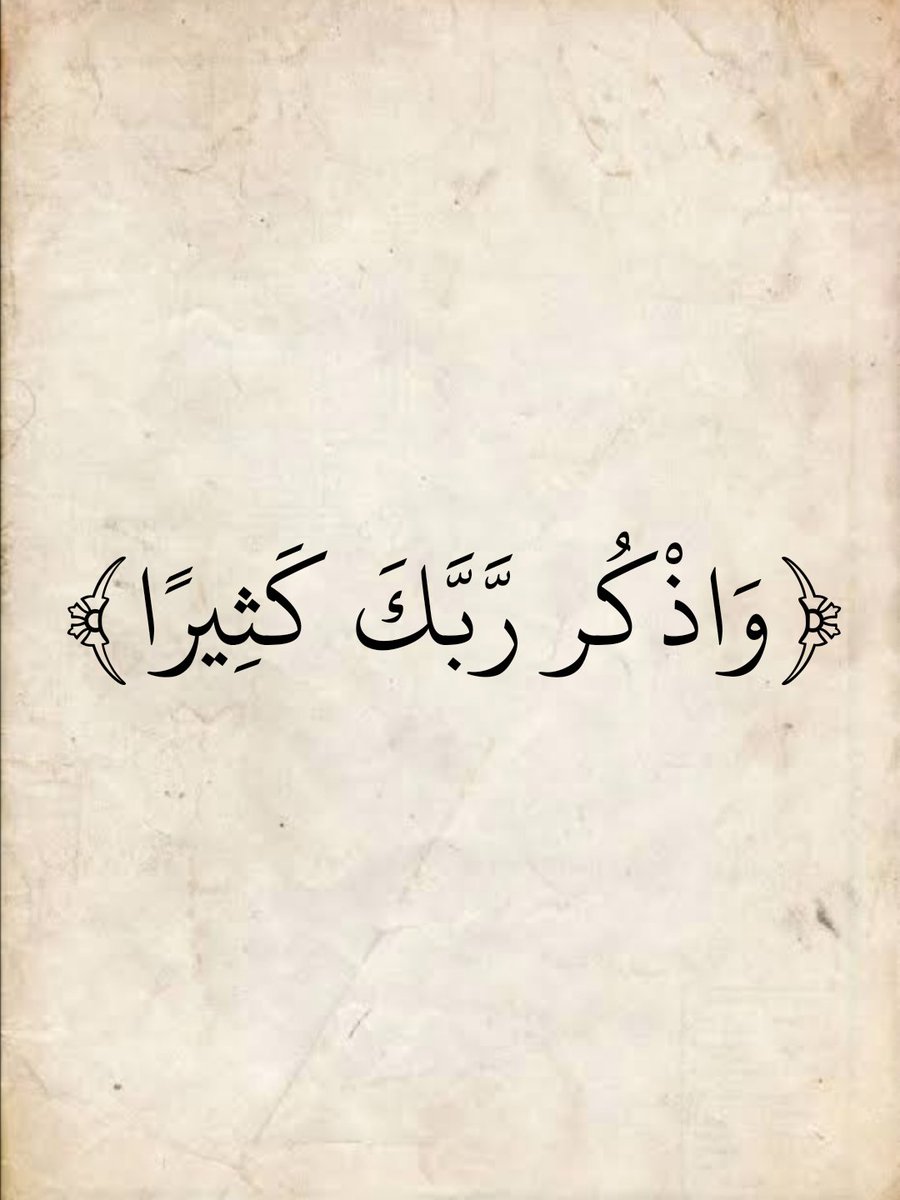 ﴿وَاذْكُر رَّبَّكَ كَثِيرًا﴾